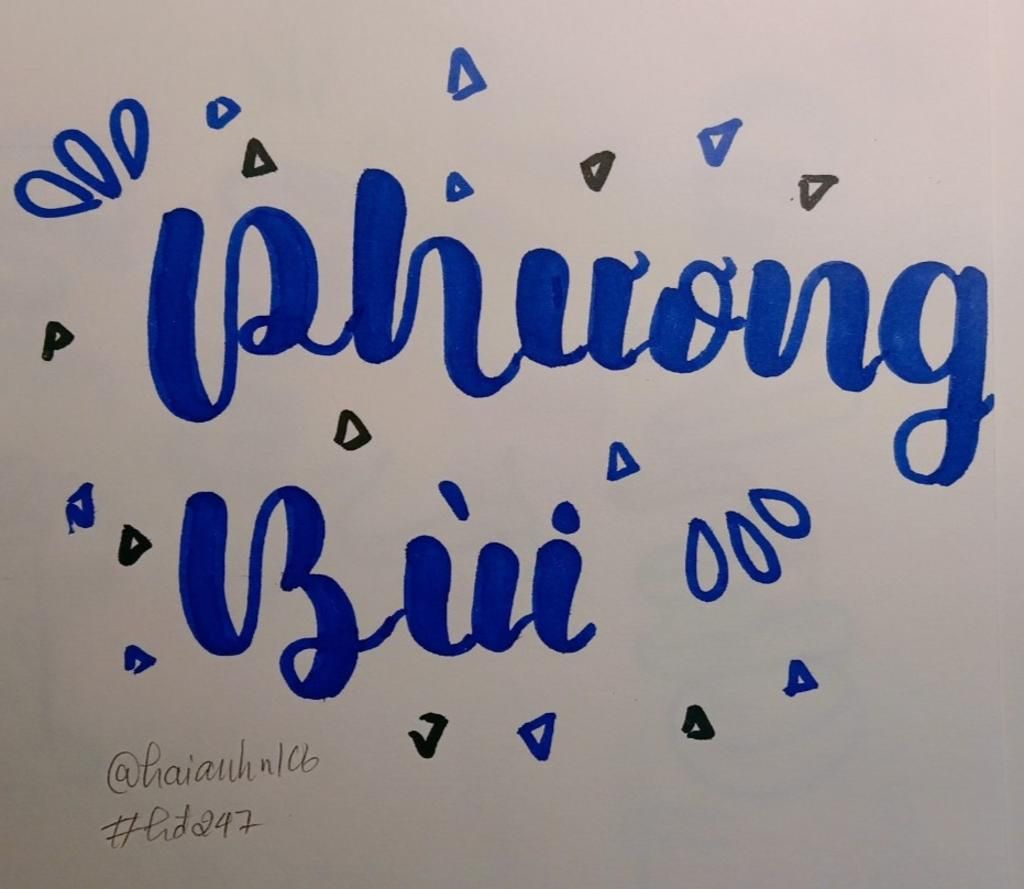 Phương
Bùi
@haianhn1cb
#hd247